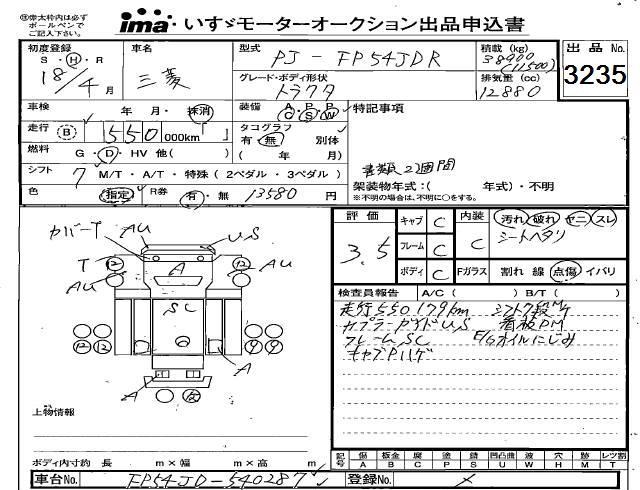 ㊟太枠内は必ず
ボールペンで
ご記入下さい。
ima いすゞモーターオークション出品申込書
初度登録 車名 型式 積載 (kg) 出品No.
S・H・R
18/4月 三菱 PJ-FP54JDR 38900 (11500)
グレード・ボディ形状 排気量(cc)
トラクタ 12880
3235
車検 年 月・抹消 装備 A・P・P
C S W 特記事項
走行 B 550 000km タコグラフ
有・無 別体
燃料 G・D・HV 他( ) ( 年 月)
書類2週間
シフト 7 M/T・A/T・特殊(2ペダル・3ペダル) 架装物年式:( 年式)・不明
※不明の場合は、不明に○をする。
色 指定 R券 有・無 13580円
評価 3.5
キャブ C 内装 C 汚れ 破れ ヤニ スレ
シートヘタリ
フレーム C
ボディ C Fガラス 割れ 線 点傷 イバリ
カバーT AU US
T 12 A 12 AU
AU
SC
12 12 9 9
A A
検査員報告 A/C( ) B/T( )
走行550179km シフト7段MT
カプラーガイドUS 看板PM
フレームSC E/Gオイルにじみ
キャブPハゲ
上物情報
ボディ内寸約 長 m×幅 m×高 m
記号 傷 板金 腐 塗 錆 凹凸曲 波 穴 跡 レンズ割
A B C P S U W H M T
車台No. FP54JD-540287 登録No.